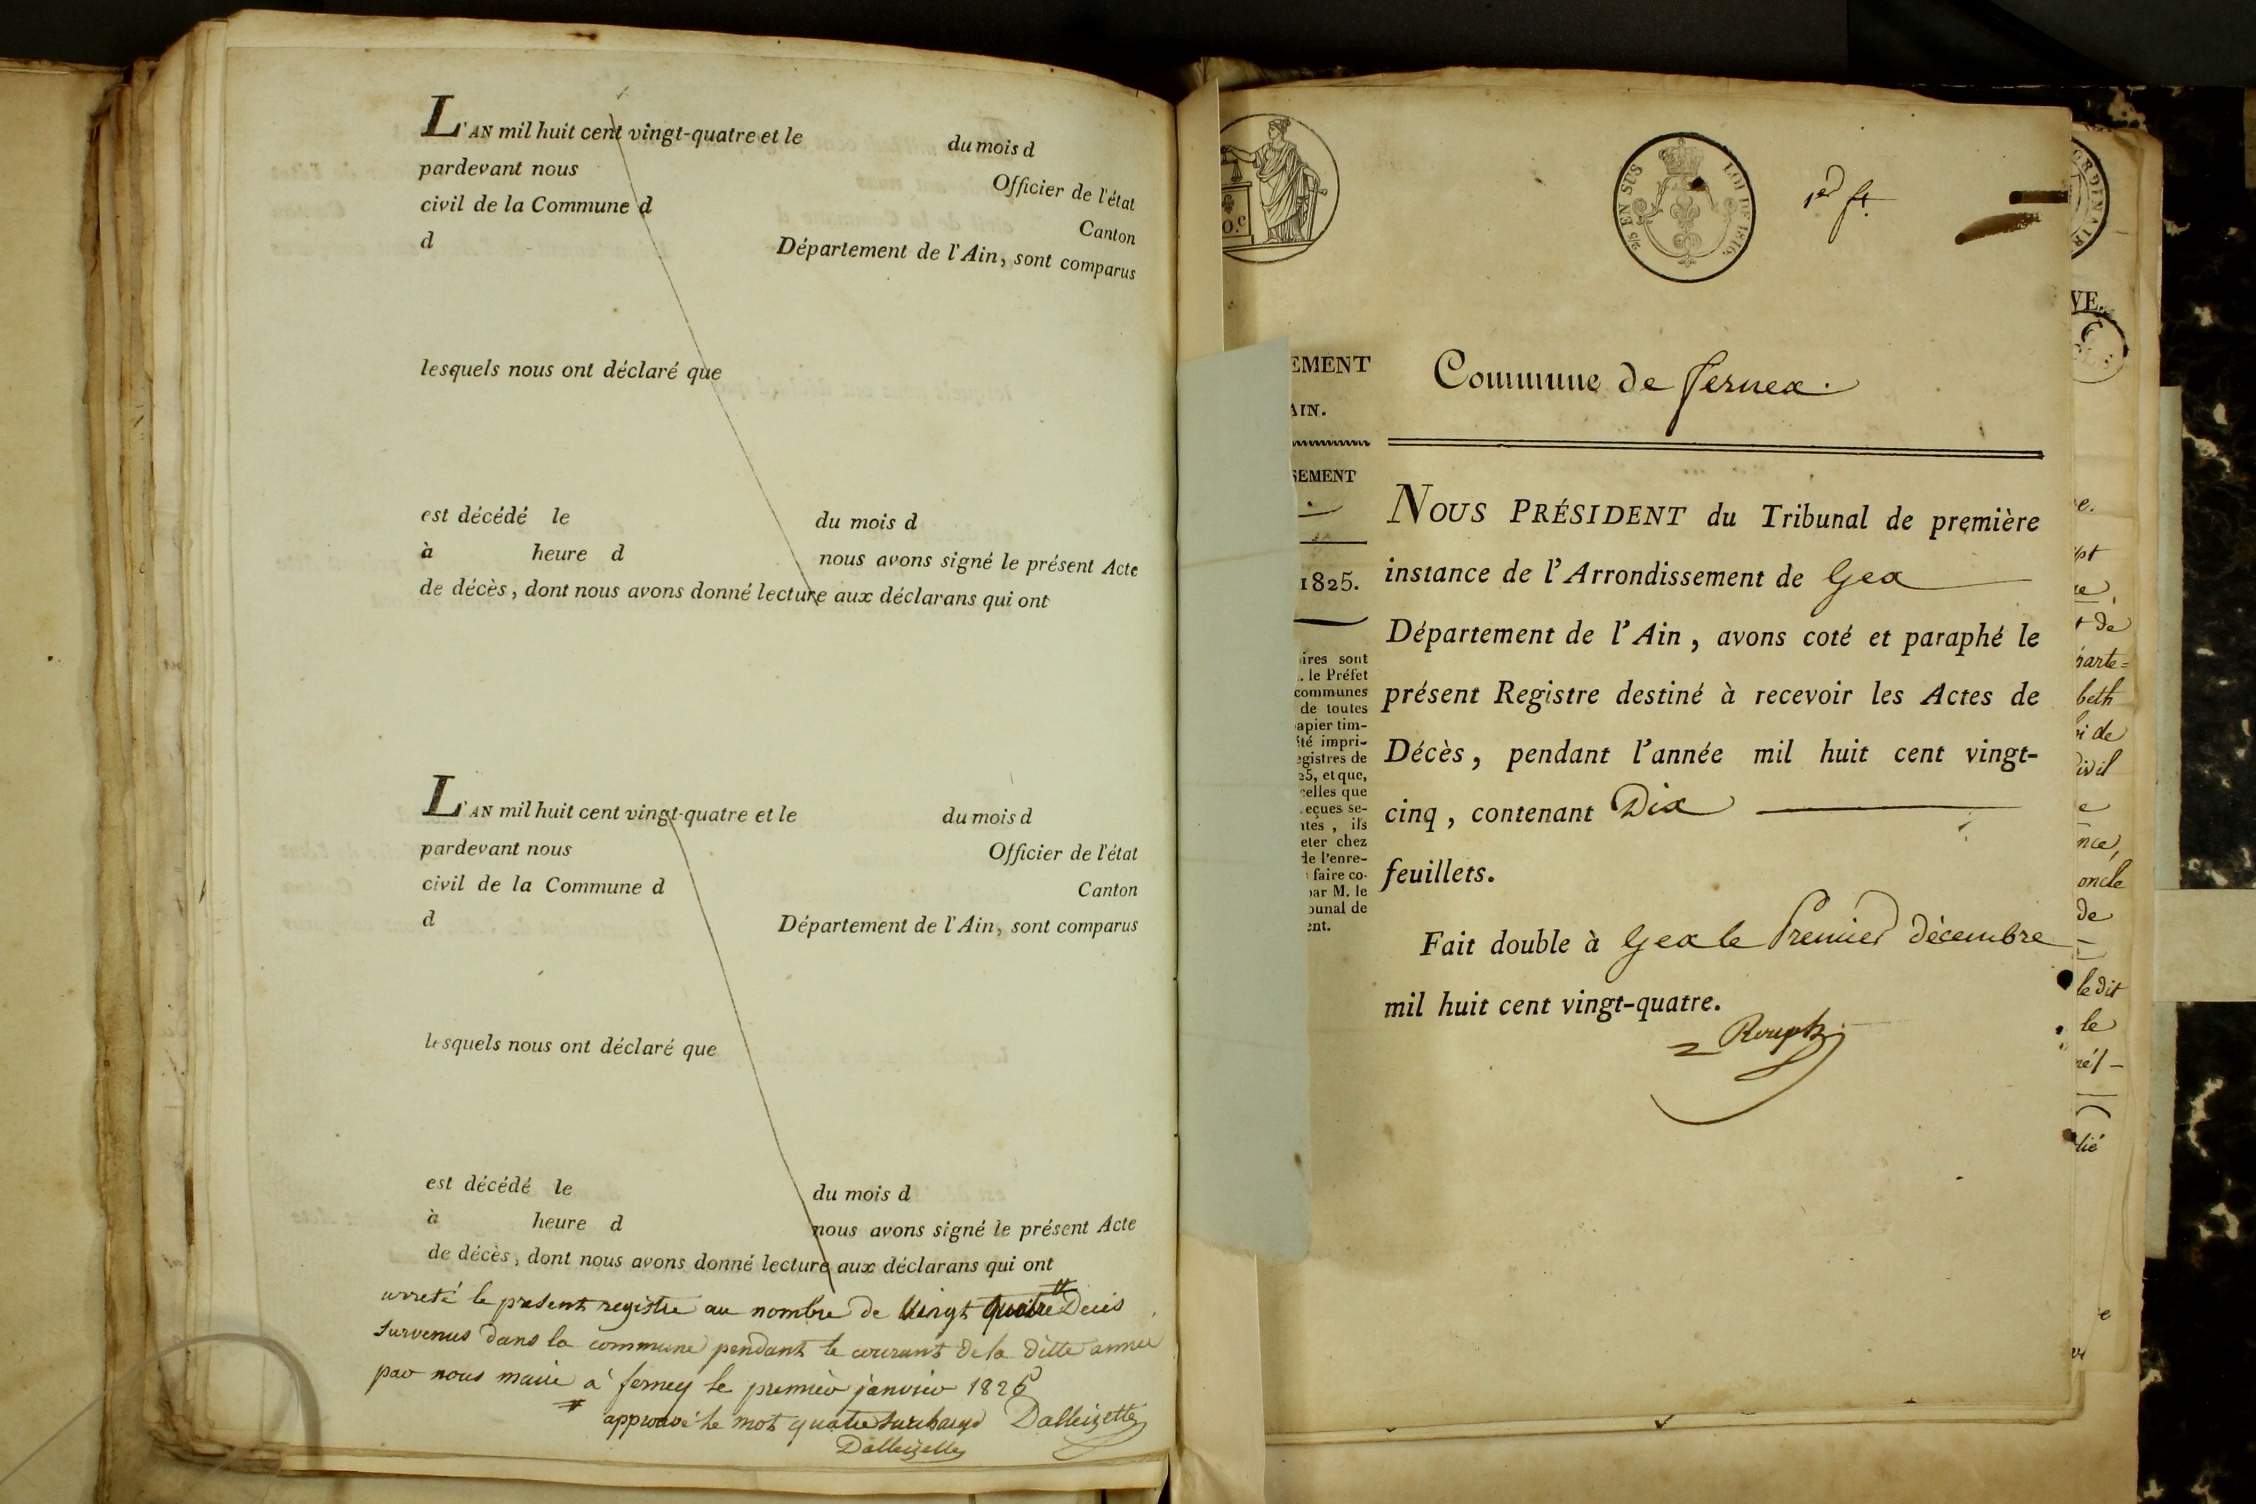 L'AN mil huit cent vingt-quatre et le du mois d
pardevant nous Officier de l'état
civil de la Commune d Canton
d Département de l'Ain, sont comparus
lesquels nous ont déclaré que
est décédé le du mois d
à heure d nous avons signé le présent Acte
de décès, dont nous avons donné lecture aux déclarans qui ont
L'AN mil huit cent vingt-quatre et le du mois d
pardevant nous Officier de l'état
civil de la Commune d Canton
d Département de l'Ain, sont comparus
lesquels nous ont déclaré que
est décédé le du mois d
à heure d nous avons signé le présent Acte
de décès, dont nous avons donné lecture aux déclarans qui ont
arreté le present registre au nombre de vingt quatre # Decés
survenus dans la commune pendant le courant de la ditte année
par nous maire à ferney le premier janvier 1825
# approuvé le mot quatre surchargé Dalleizette
Dalleizette
2/5 EN SUS LOI DE 1816.
1er ft.
EMENT
AIN.
SEMENT
1825.
ires sont
. le Préfet
communes
de toutes
apier tim-
été impri-
egistres de
25, et que,
celles que
eçues se-
ntes, ils
eter chez
de l'enre-
faire co-
par M. le
bunal de
ent.
Commune de Fernex.
NOUS PRÉSIDENT du Tribunal de première
instance de l'Arrondissement de Gex
Département de l'Ain, avons coté et paraphé le
présent Registre destiné à recevoir les Actes de
Décès, pendant l'année mil huit cent vingt-
cinq, contenant Dix
feuillets.
Fait double à Gex le Premier décembre
mil huit cent vingt-quatre.
Rouph
ORDINAIR
VE.
e.
t de
parte=
beth
i de
ivil
e
nce,
oncle
de
le dit
le
né/-
lié
e